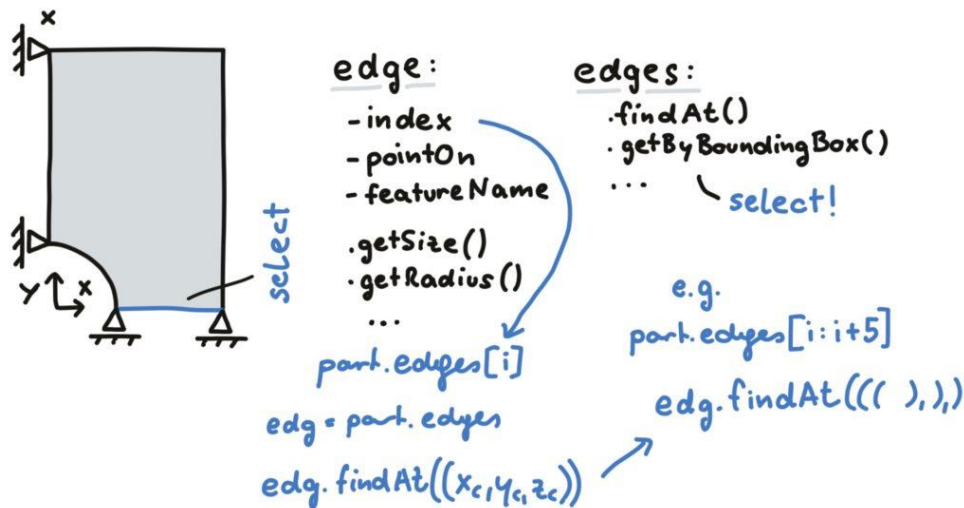 x
y
x
select
edge:
-index
-pointOn
-featureName
.getSize()
.getRadius()
...
part.edges[i]
edg = part.edges
edg.findAt((xc,yc,zc))
edges:
.findAt()
.getByBoundingBox()
...
select!
e.g.
part.edges[i:i+5]
edg.findAt((( ),),)